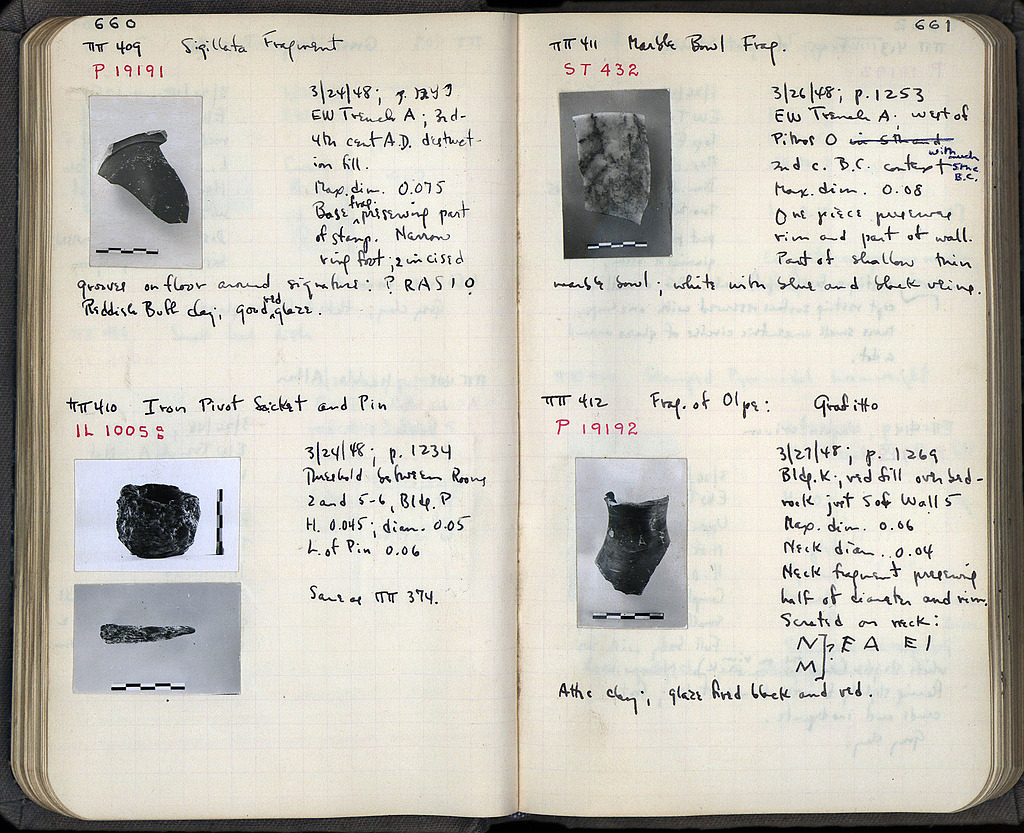 660
ΠΠ 409 Sigillata Fragment
P 19191
3/24/48; p.
EW Trench A; 3rd-
4th cent A.D. destruct-
ion fill.
Max. dim. 0.075
Base frag. preserving part
of stamp. Narrow
ring foot; 2 incised
grooves on floor around signature: ? RASIO
Reddish Buff clay; good red glaze.
ΠΠ 410 Iron Pivot Socket and Pin
IL 1005
3/24/48; p. 1234
Threshold between Rooms
2 and 5-6, Bldg. P
H. 0.045; diam. 0.05
L. of Pin 0.06
Same as ΠΠ 374.
661
ΠΠ 411 Marble Bowl Frag.
ST 432
3/26/48; p. 1253
EW Trench A; west of
Pithos O
2nd c. B.C. context with much 5th c B.C.
Max. dim. 0.08
One piece preserves
rim and part of wall.
Part of shallow thin
marble bowl: white with blue and black veins.
ΠΠ 412 Frag. of Olpe: Grafitto
P 19192
3/27/48; p. 1269
Bldg. K; red fill over bed-
rock just S of Wall 5
Max. dim. 0.06
Neck diam. 0.04
Neck fragment preserving
half of diameter and rim.
Scratched on neck:
N]? E A E I
M]
Attic clay; glaze fired black and red.